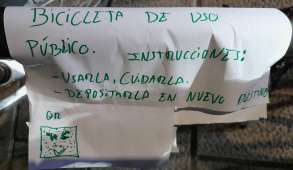 BICICLETA DE USO
PÚBLICO. INSTRUCCIONES:
- USARLA, CUIDARLA.
- DEPOSITARLA EN NUEVO
QR